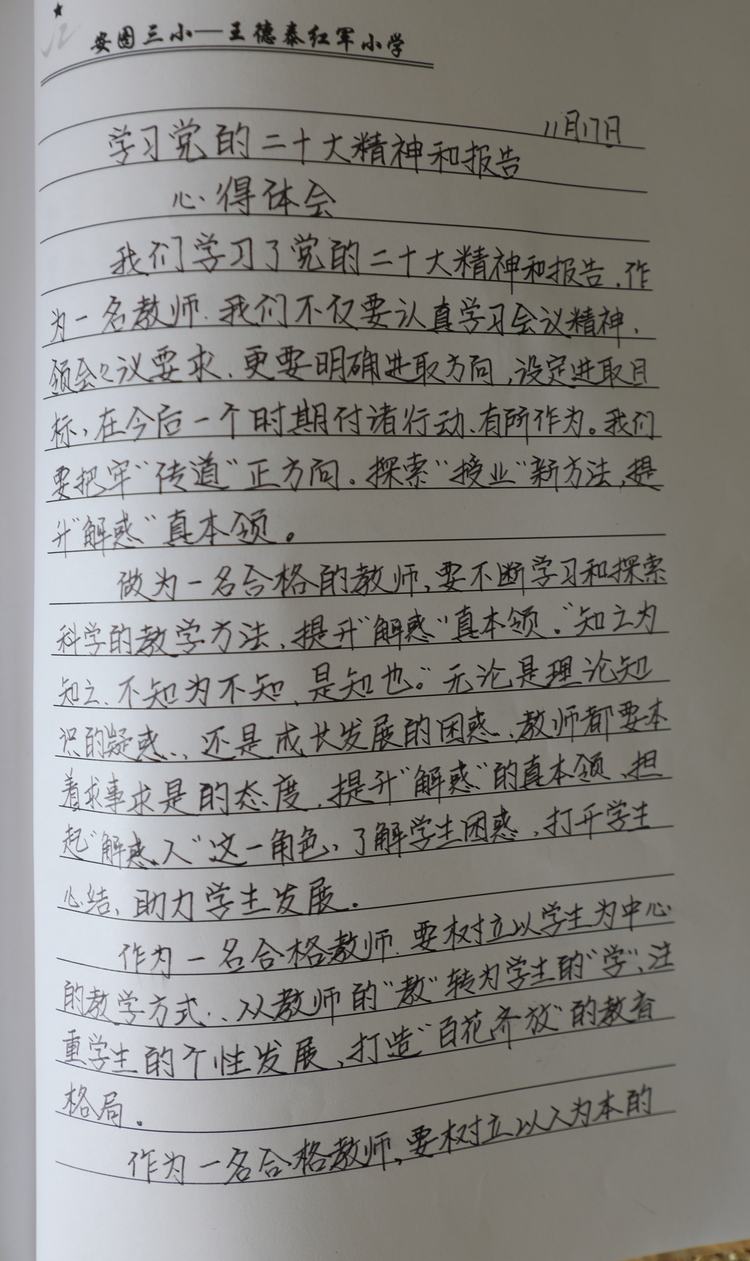 安图三小——王德泰红军小学
11月17日
学习党的二十大精神和报告
心得体会
我们学习了党的二十大精神和报告,作
为一名教师.我们不仅要认真学习会议精神,
领会会议要求、更要明确进取方向,设定进取目
标,在今后一个时期付诸行动、有所作为。我们
要把牢“传道”正方向。探索“授业”新方法,提
升“解惑”真本领。
做为一名合格的教师,要不断学习和探索
科学的教学方法,提升“解惑”真本领。“知之为
知之、不知为不知,是知也。”无论是理论知
识的疑惑、还是成长发展的困惑,教师都要本
着求事求是的态度,提升“解惑”的真本领,担
起“解惑人”这一角色,了解学生困惑,打开学生
心结,助力学生发展.
作为一名合格教师.要树立以学生为中心
的教学方式..从教师的“教”转为学生的“学”,注
重学生的个性发展,打造“百花齐放”的教育
格局.
作为一名合格教师,要树立以人为本的